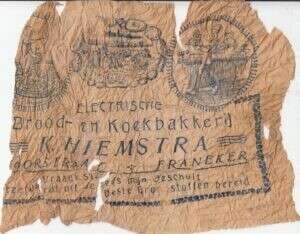 ELECTRISCHE
Brood- en Koekbakkerij
K. HIEMSTRA
OORSTRAAT FRANEKER
Vraagt mijn beschuit
uit de beste grondstoffen bereid